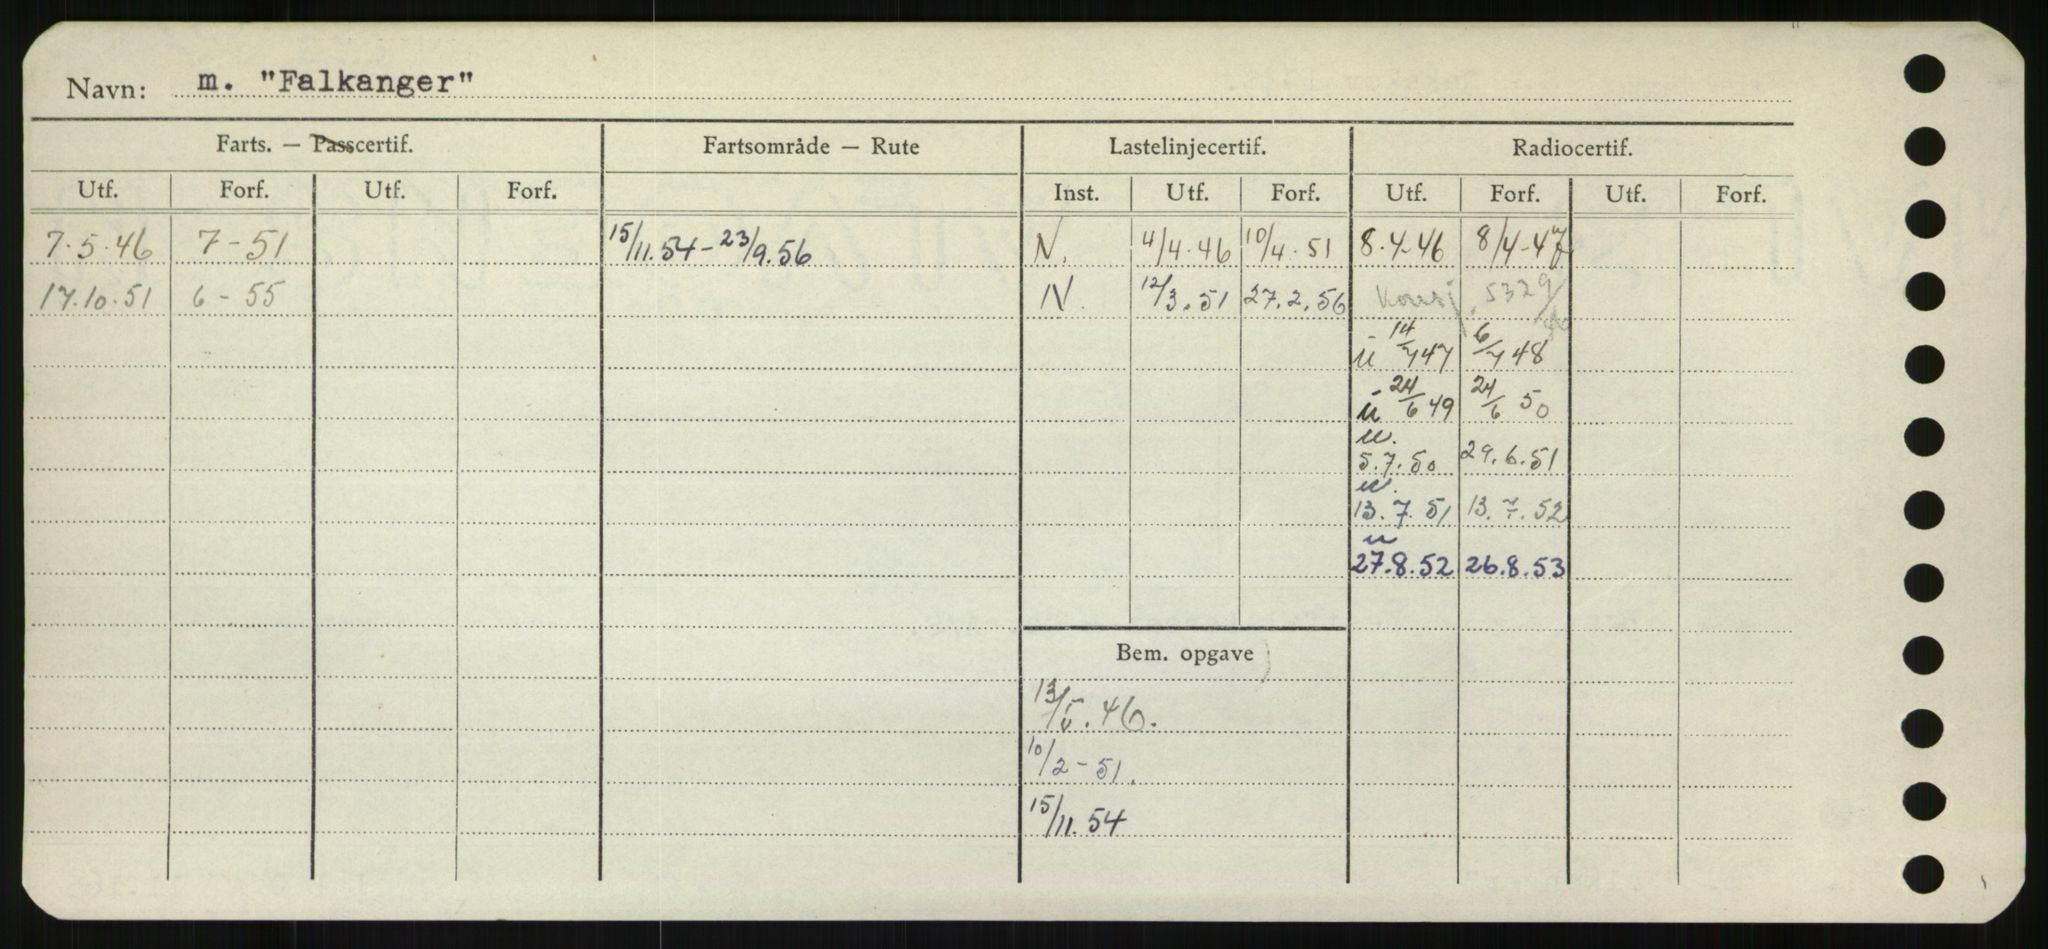 Navn: m. "Falkanger"
Farts. — Passcertif. Fartsområde — Rute Lastelinjecertif. Radiocertif.
Utf. Forf. Utf. Forf. Inst. Utf. Forf. Utf. Forf. Utf. Forf.
7.5.46 7-51 15/11.54-23/9.56 N. 4/4.46 10/4.51 8.4.46 8/4-47
17.10.51 6-55 N. 12/3.51 27.2.56 5329/
u 14/7 47 6/7 48
u 24/6 49 24/6 50
u.
5.7.50 29.6.51
u.
13.7.51 13.7.52
u
27.8.52 26.8.53
Bem. opgave
13/5.46.
10/2-51.
15/11.54